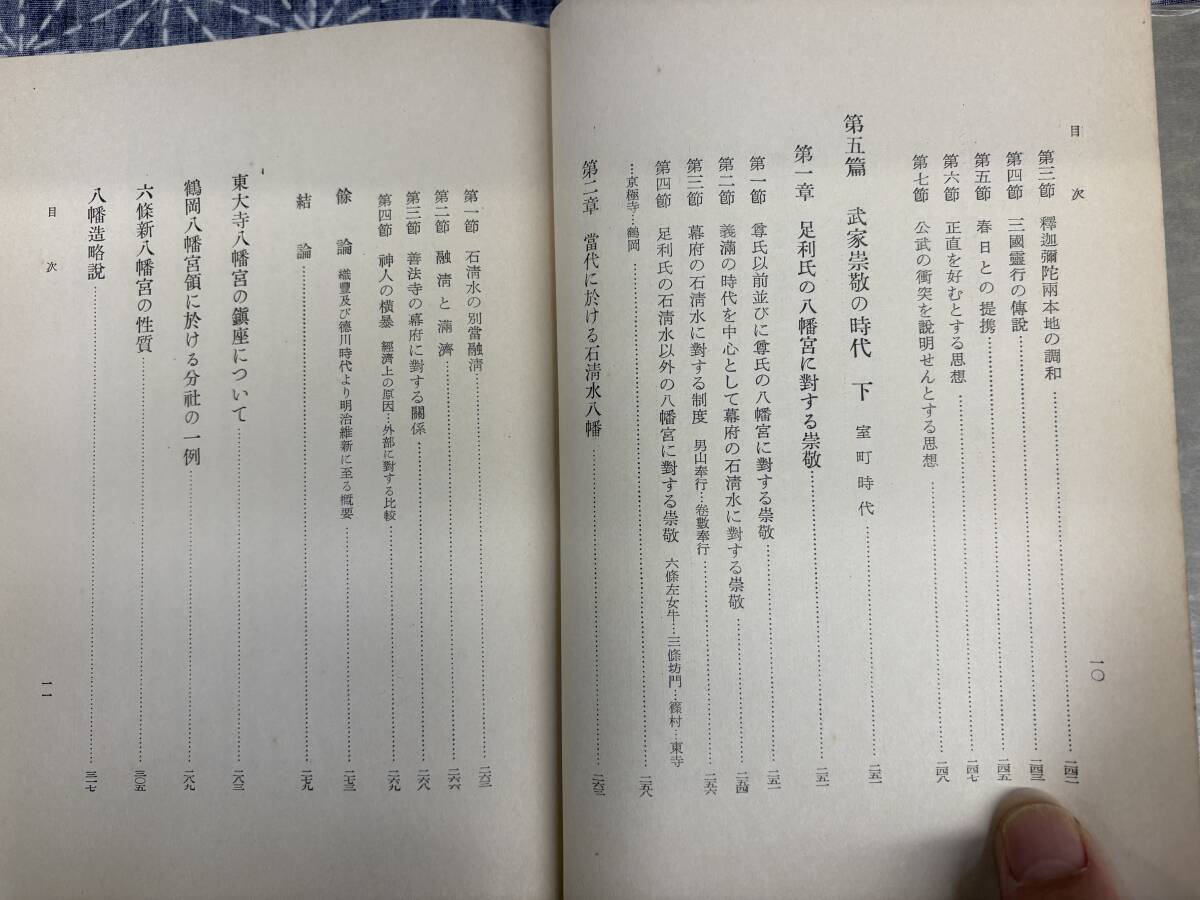 目次
一〇
第三節 釋迦彌陀兩本地の調和……二四二
第四節 三國靈行の傳說……二四三
第五節 春日との提携……二四五
第六節 正直を好むとする思想……二四七
第七節 公武の衝突を說明せんとする思想……二四八
第五篇 武家崇敬の時代 下 室町時代……二五一
第一章 足利氏の八幡宮に對する崇敬……二五一
第一節 尊氏以前並びに尊氏の八幡宮に對する崇敬……二五一
第二節 義滿の時代を中心として幕府の石淸水に對する崇敬……二五四
第三節 幕府の石淸水に對する制度 男山奉行…卷數奉行……二五六
第四節 足利氏の石淸水以外の八幡宮に對する崇敬 六條左女牛…三條坊門…篠村…東寺
…京極寺…鶴岡……二五八
第二章 當代に於ける石淸水八幡……二六三
第一節 石淸水の別當融淸……二六三
第二節 融淸と滿濟……二六六
第三節 善法寺の幕府に對する關係……二六八
第四節 神人の橫暴 經濟上の原因…外部に對する比較……二六九
餘論 織豐及び德川時代より明治維新に至る槪要……二七三
結論……二七九
東大寺八幡宮の鎭座について……二八三
鶴岡八幡宮領に於ける分社の一例……二八九
六條新八幡宮の性質……三〇五
八幡造略說……三一七
目次
一一